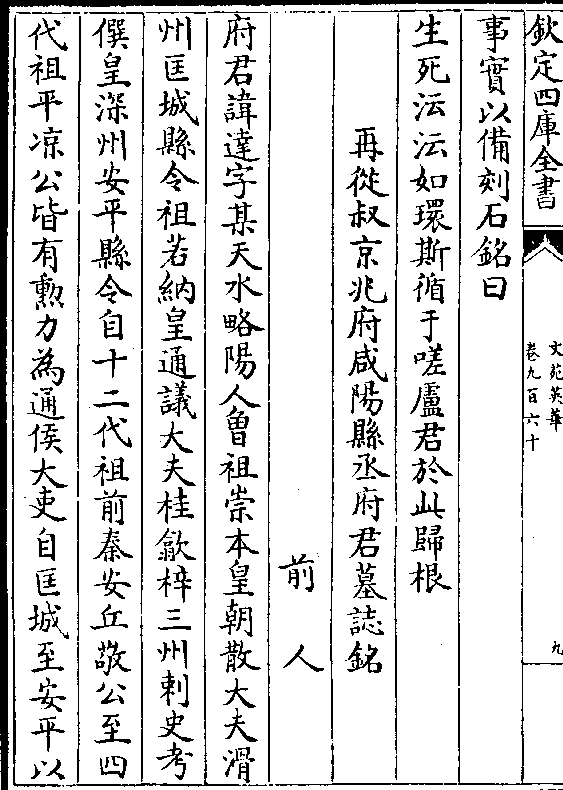 欽定四庫全書
文苑英華
卷九百六十
九
事實以備刻石銘曰
生死沄沄如環斯循于嗟盧君於此歸根
再從叔京兆府咸陽縣丞府君墓誌銘
前人
府君諱達字某天水略陽人曾祖崇本皇朝散大夫滑
州匡城縣令祖若納皇通議大夫桂歙梓三州刺史考
僎皇深州安平縣令自十二代祖前秦安丘敬公至四
代祖平凉公皆有勲力為通侯大吏自匡城至安平以